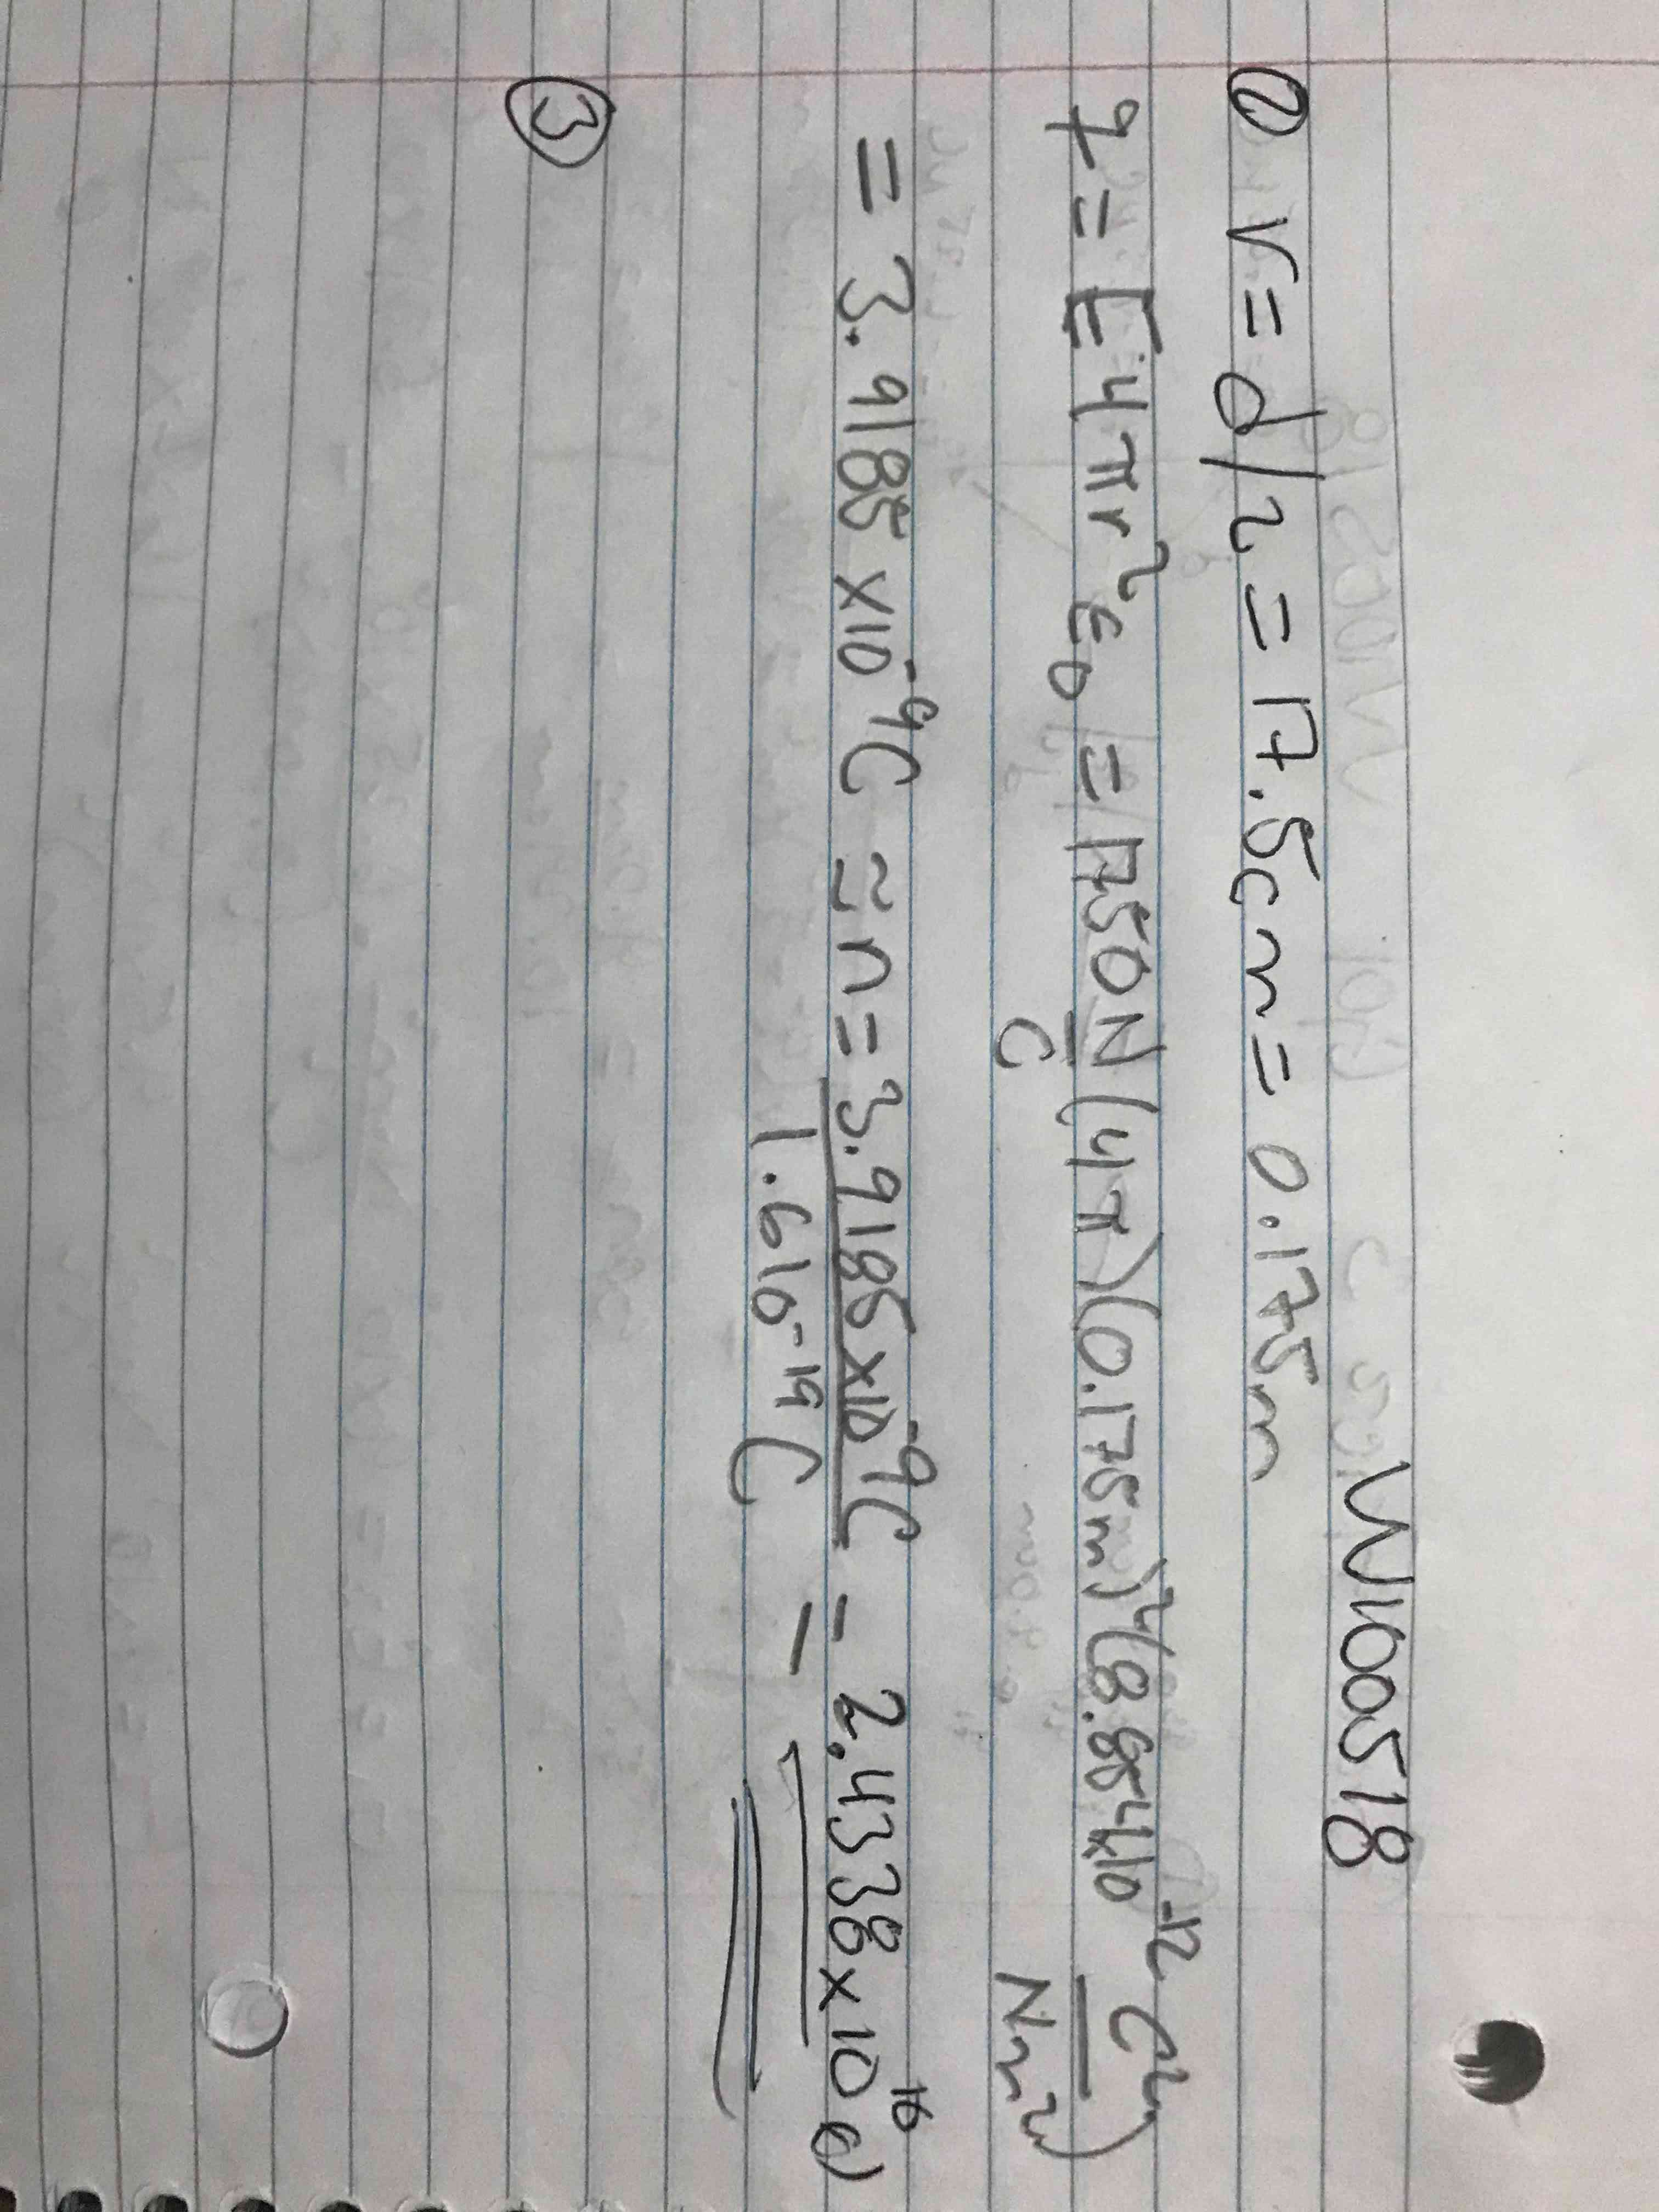 W100518
② r = d/2 = 17.5cm = 0.175m
q = E 4πr²ε₀ = 1750 N/C (4π)(0.175m)²(8.854x10⁻¹² C²/Nm²)
= 3.9185 x10⁻⁹C ≅ n = 3.9185x10⁻⁹C / 1.610⁻¹⁹C = 2.4338x10¹⁶ e)
③